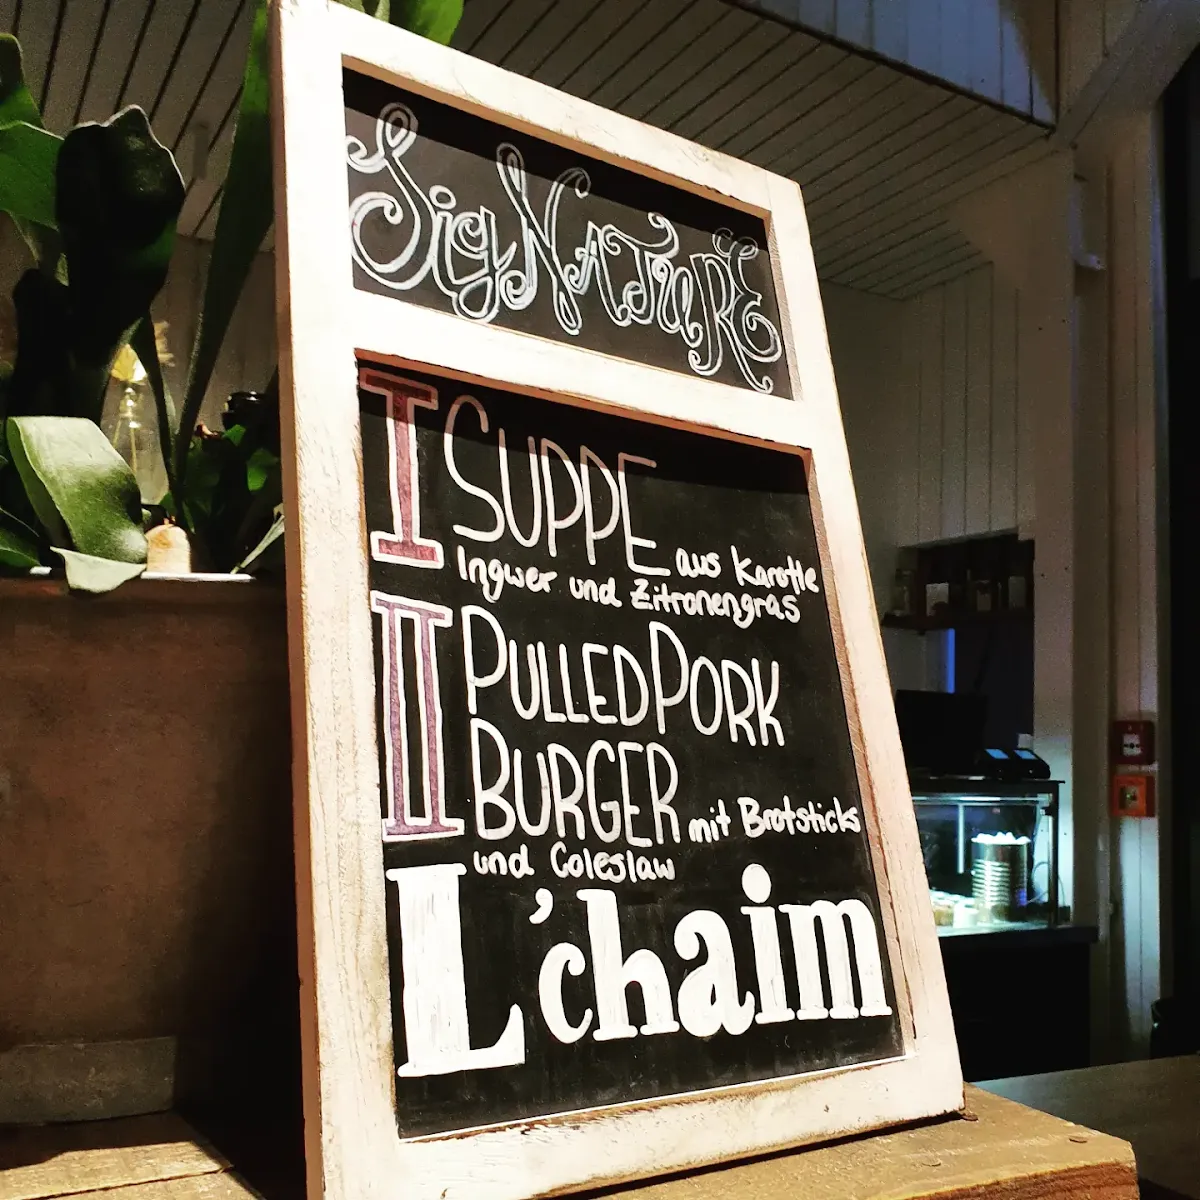 SigNATURE
I SUPPE aus Karotte
Ingwer und Zitronengras
II PULLED PORK
BURGER mit Brotsticks
und Coleslaw
L'chaim